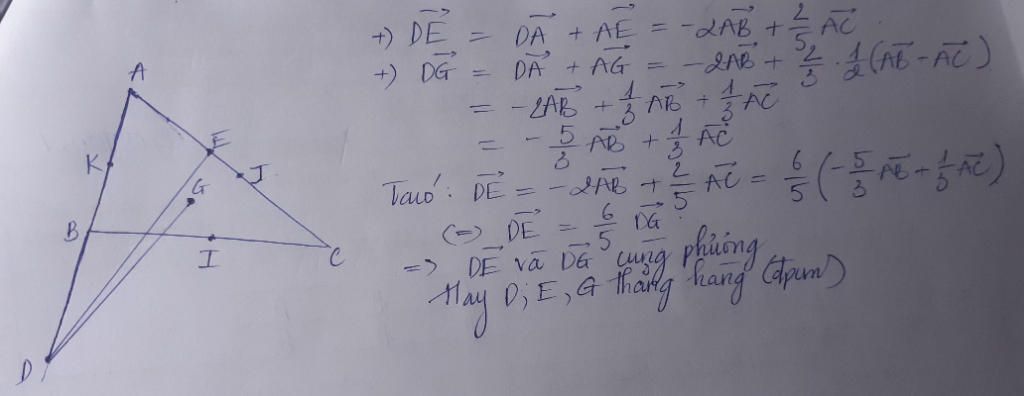 A
K
E
G
J
B
I
C
D
+) \vec{DE} = \vec{DA} + \vec{AE} = -2\vec{AB} + \frac{2}{5}\vec{AC}.
+) \vec{DG} = \vec{DA} + \vec{AG} = -2\vec{AB} + \frac{2}{3} \cdot \frac{1}{2}(\vec{AB} - \vec{AC})
= -2\vec{AB} + \frac{1}{3}\vec{AB} + \frac{1}{3}\vec{AC}
= -\frac{5}{3}\vec{AB} + \frac{1}{3}\vec{AC}
Ta có: \vec{DE} = -2\vec{AB} + \frac{2}{5}\vec{AC} = \frac{6}{5}(-\frac{5}{3}\vec{AB} + \frac{1}{3}\vec{AC})
(=) \vec{DE} = \frac{6}{5}\vec{DG}.
=> \vec{DE} và \vec{DG} cùng phương
Hay D, E, G thẳng hàng (đpcm)